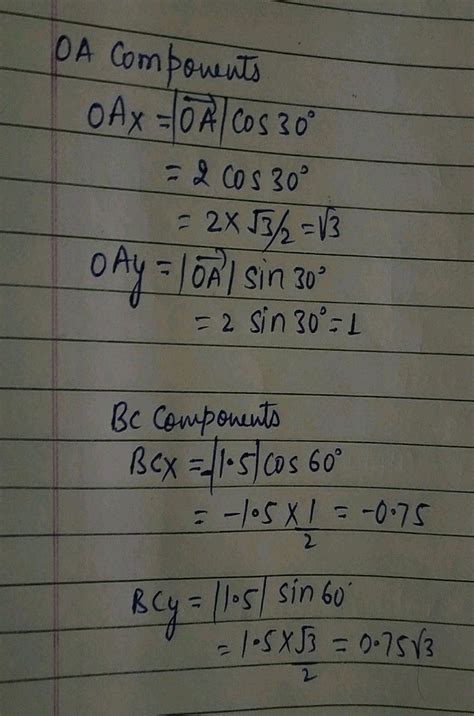 OA Components
OAx = |OA→| cos 30°
= 2 cos 30°
= 2 × √3/2 = √3
OAy = |OA→| sin 30°
= 2 sin 30° = 1
BC Components
BCx = -|1.5| cos 60°
= -1.5 × 1/2 = -0.75
BCy = |1.5| sin 60°
= 1.5 × √3/2 = 0.75√3